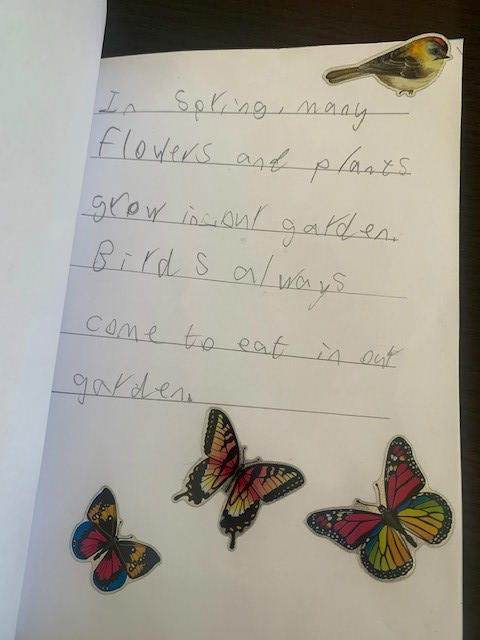 In Spring, many
flowers and plants
grow in our garden.
Birds always
come to eat in our
garden.